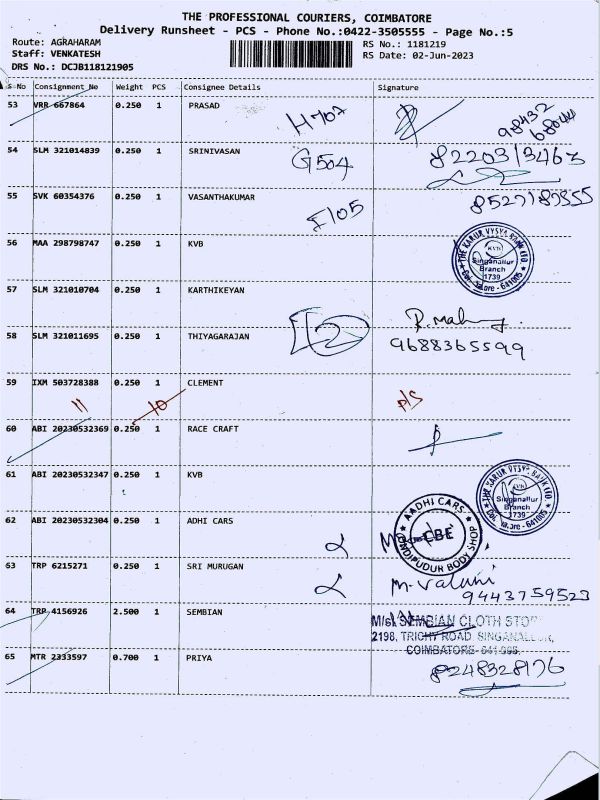 THE PROFESSIONAL COURIERS, COIMBATORE
Delivery Runsheet - PCS - Phone No.:0422-3505555 - Page No.:5
Route: AGRAHARAM
Staff: VENKATESH
DRS No.: DCJB118121905
RS No.: 1181219
RS Date: 02-Jun-2023
S No Consignment No Weight PCS Consignee Details Signature
53 VRR 667864 0.250 1 PRASAD
H707
98432
68044
54 SLM 321014839 0.250 1 SRINIVASAN
G504
8220313463
55 SVK 60354376 0.250 1 VASANTHAKUMAR
F105
56 MAA 298798747 0.250 1 KVB
THE KARUR VYSYA BANK LTD.
KVB
Singanallur
Branch
1739
57 SLM 321010704 0.250 1 KARTHIKEYAN
58 SLM 321011695 0.250 1 THIYAGARAJAN
9688365599
59 IXM 503728388 0.250 1 CLEMENT
11 10 P/S
60 ABI 20230532369 0.250 1 RACE CRAFT
61 ABI 20230532347 0.250 1 KVB
THE KARUR VYSYA BANK LTD.
KVB
Singanallur
Branch
1739
62 ABI 20230532304 0.250 1 ADHI CARS
AADHI CARS
CBE
ONDIPUDUR BODY SHOP
63 TRP 6215271 0.250 1 SRI MURUGAN
9443759523
64 TRP 4156926 2.500 1 SEMBIAN
M/s. SEMBIAN CLOTH STO
2198, TRICHY ROAD, SINGANALLUR,
COIMBATORE- 641 005.
65 MTR 2333597 0.700 1 PRIYA
8248328176